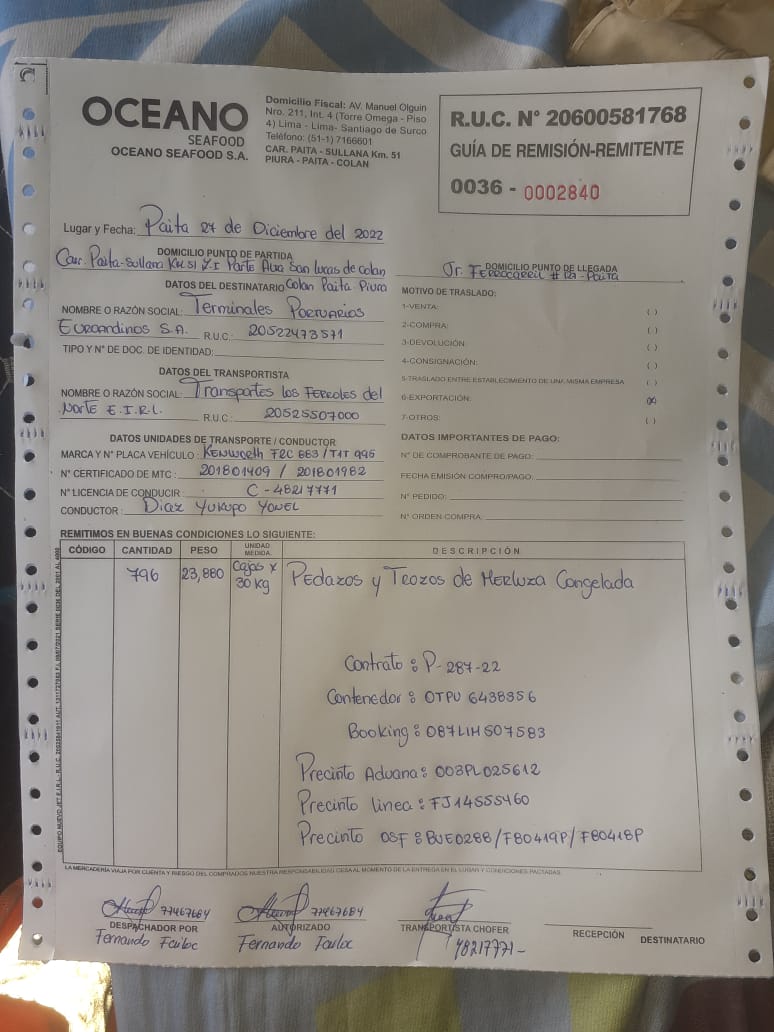 OCEANO
SEAFOOD
OCEANO SEAFOOD S.A.
Domicilio Fiscal: AV. Manuel Olguin
Nro. 211, Int. 4 (Torre Omega - Piso
4) Lima - Lima- Santiago de Surco
Teléfono: (51-1) 7166601
CAR. PAITA - SULLANA Km. 51
PIURA - PAITA - COLAN
R.U.C. N° 20600581768
GUÍA DE REMISIÓN-REMITENTE
0036 - 0002840
Lugar y Fecha: Paita 27 de Diciembre del 2022
DOMICILIO PUNTO DE PARTIDA
Car. Paita-Sullana KM 51 Z.I Parte Alta San Lucas de colan
Colan Paita Piura
DOMICILIO PUNTO DE LLEGADA
Jr. Ferrocarril # 127 - Paita
DATOS DEL DESTINATARIO
NOMBRE O RAZÓN SOCIAL: Terminales Portuarios
Euroandinos S.A. R.U.C. 20522473571
TIPO Y N° DE DOC. DE IDENTIDAD:
DATOS DEL TRANSPORTISTA
NOMBRE O RAZÓN SOCIAL: Transportes los Ferroles del
Norte E.I.R.L. R.U.C.: 20525507000
DATOS UNIDADES DE TRANSPORTE / CONDUCTOR
MARCA Y N° PLACA VEHÍCULO: Kenworth F2C 883 / T1T 995
N° CERTIFICADO DE MTC: 201801409 / 201801982
N° LICENCIA DE CONDUCIR: C-48217771
CONDUCTOR: Diaz Yukupo Yonel
MOTIVO DE TRASLADO:
1-VENTA: ( )
2-COMPRA: ( )
3-DEVOLUCIÓN: ( )
4-CONSIGNACIÓN: ( )
5-TRASLADO ENTRE ESTABLECIMIENTO DE UNA MISMA EMPRESA ( )
6-EXPORTACIÓN: (X)
7-OTROS: ( )
DATOS IMPORTANTES DE PAGO:
N° DE COMPROBANTE DE PAGO:
FECHA EMISIÓN COMPRO/PAGO:
N° PEDIDO:
N° ORDEN COMPRA:
REMITIMOS EN BUENAS CONDICIONES LO SIGUIENTE:
CÓDIGO CANTIDAD PESO UNIDAD MEDIDA DESCRIPCIÓN
796 23,880 Cajas x 30 kg Pedazos y Trozos de Merluza Congelada
Contrato: P-287-22
Contenedor: OTPU 6438356
Booking: 087LIH507583
Precinto Aduana: 003PL025612
Precinto linea: FJ14555460
Precinto OSF: BUE0288/F80419P/F80418P
LA MERCADERÍA VIAJA POR CUENTA Y RIESGO DEL COMPRADOS NUESTRA RESPONSABILIDAD CESA AL MOMENTO DE LA ENTREGA EN EL LUGAR Y CONDICIONES PACTADAS.
77467684 77467684
DESPACHADOR POR AUTORIZADO TRANSPORTISTA CHOFER RECEPCIÓN DESTINATARIO
Fernando Fauloc Fernando Fauloc 48217771-